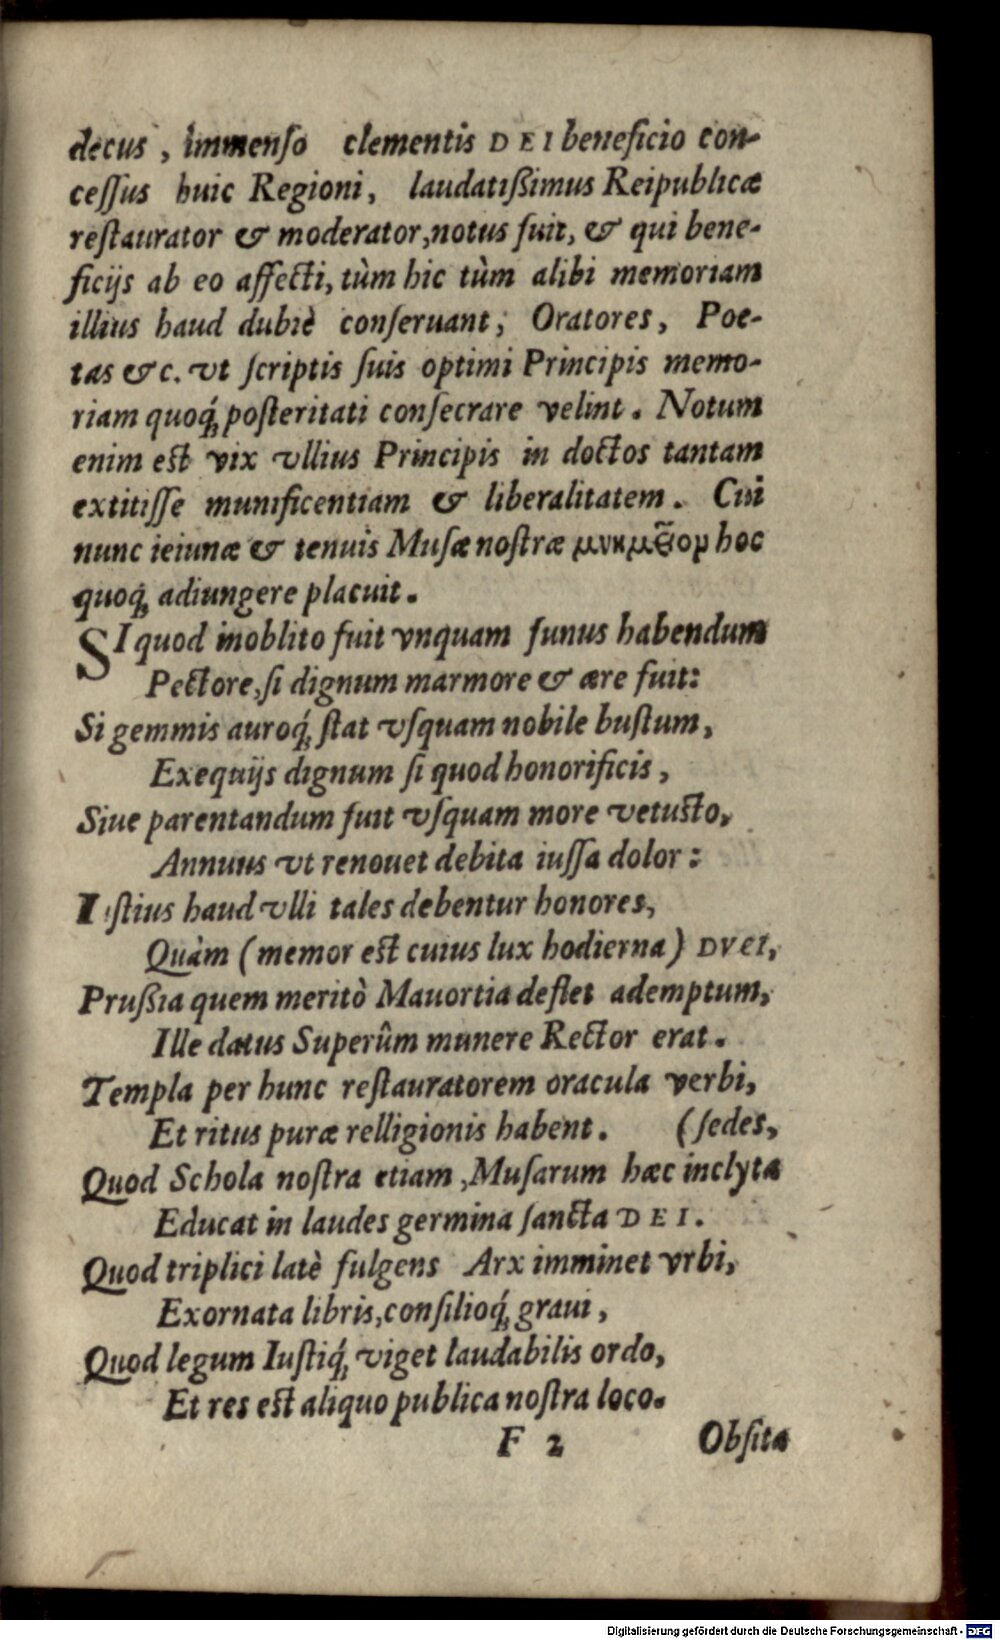 decus, immenso clementis DEI beneficio con-
cessus huic Regioni, laudatißimus Reipublicæ
restaurator & moderator, notus fuit, & qui bene-
ficijs ab eo affecti, tùm hic tùm alibi memoriam
illius haud dubiè conseruant; Oratores, Poe-
tas &c. vt scriptis suis optimi Principis memo-
riam quoq́; posteritati consecrare velint. Notum
enim est vix vllius Principis in doctos tantam
extitisse munificentiam & liberalitatem. Cui
nunc ieiunæ & tenuis Musæ nostræ hoc
quoq́; adiungere placuit.
SI quod inoblito fuit vnquam funus habendum
Pectore, si dignum marmore & ære fuit:
Si gemmis auroq́; stat vsquam nobile bustum,
Exequijs dignum si quod honorificis,
Siue parentandum fuit vsquam more vetusto,
Annuus vt renouet debita iussa dolor:
Istius haud vlli tales debentur honores,
Quàm (memor est cuius lux hodierna) DVCI,
Prußia quem meritò Mauortia deflet ademptum,
Ille datus Superûm munere Rector erat.
Templa per hunc restauratorem oracula verbi,
Et ritus puræ relligionis habent. (sedes,
Quod Schola nostra etiam, Musarum hæc inclyta
Educat in laudes germina sancta DEI.
Quod triplici latè fulgens Arx imminet vrbi,
Exornata libris, consilioq́; graui,
Quod legum Iustiq́; viget laudabilis ordo,
Et res est aliquo publica nostra loco.
F 2 Obsita
Digitalisierung gefördert durch die Deutsche Forschungsgemeinschaft - DFG